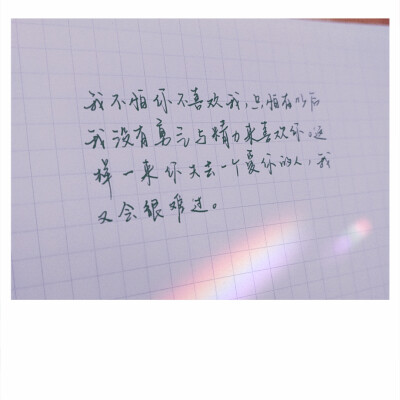 我不怕你不喜欢我,只怕有以后
我没有勇气与精力来喜欢你。这
样一来你失去一个爱你的人,我
又会很难过。